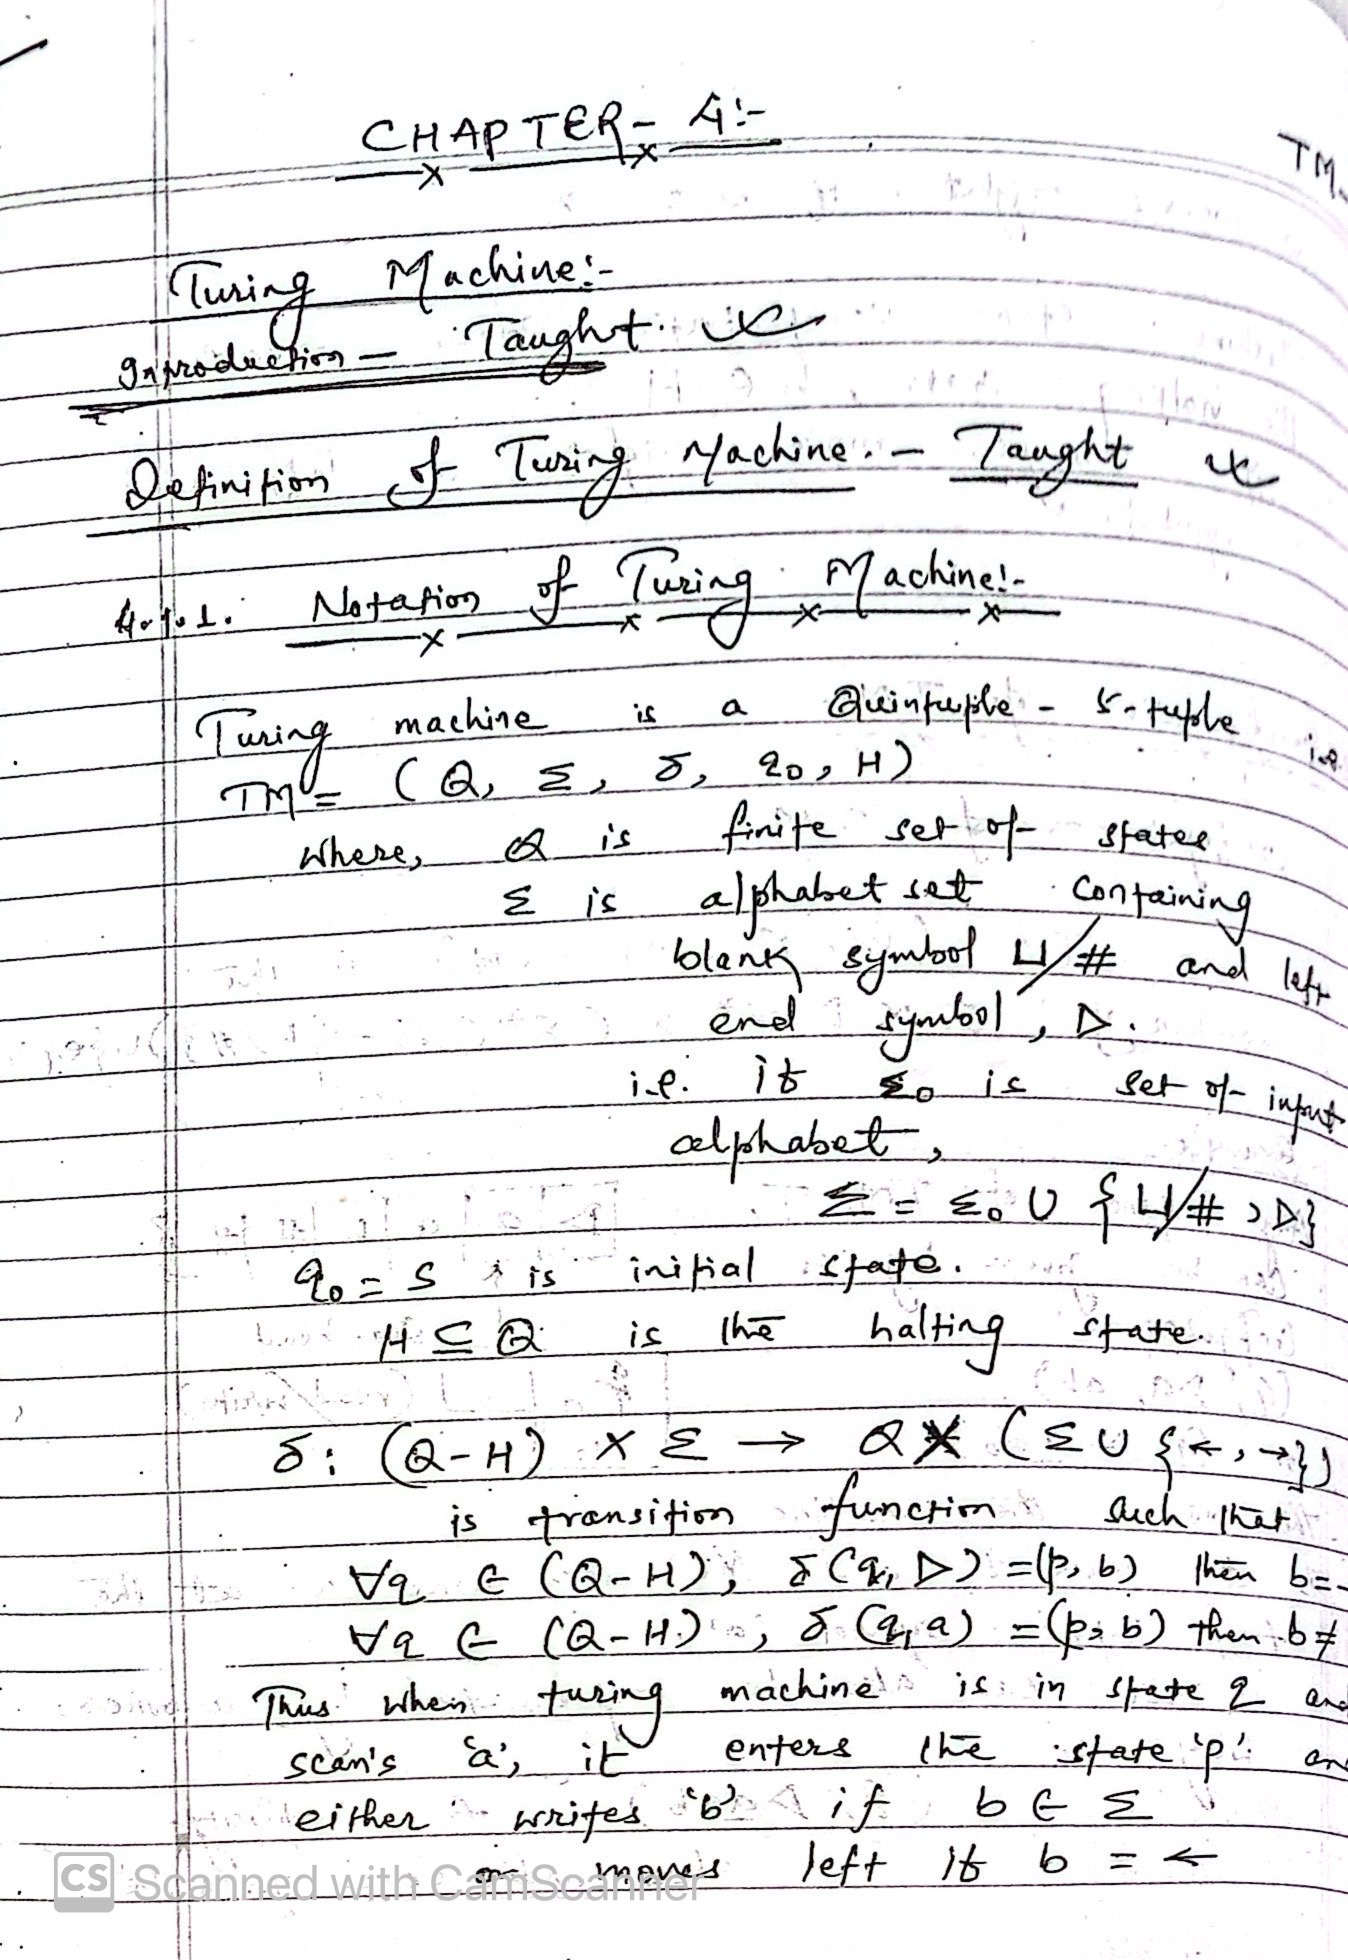 CHAPTER - 4:-
TM
Turing Machine:-
Inproduction - Taught.
Definition of Turing Machine. - Taught
4.1.1. Notation of Turing Machine:-
Turing machine is a Quintuple - 5-tuple i.e.
TM = (Q, Σ, δ, q0, H)
where, Q is finite set of states
Σ is alphabet set containing
blank symbol ⊔/# and left
end symbol, ▷.
i.e. if Σ0 is set of input
alphabet,
Σ = Σ0 ∪ {⊔/#, ▷}
q0 = s is initial state.
H ⊆ Q is the halting state.
δ: (Q-H) × Σ → Q × (Σ ∪ {←, →})
is transition function such that
∀q ∈ (Q-H), δ(q, ▷) = (p, b) then b =
∀q ∈ (Q-H), δ(q, a) = (p, b) then b ≠
Thus when turing machine is in state q and
scan's 'a', it enters the state 'p' an
either writes 'b' if b ∈ Σ
or moves left if b = ←
CS Scanned with CamScanner